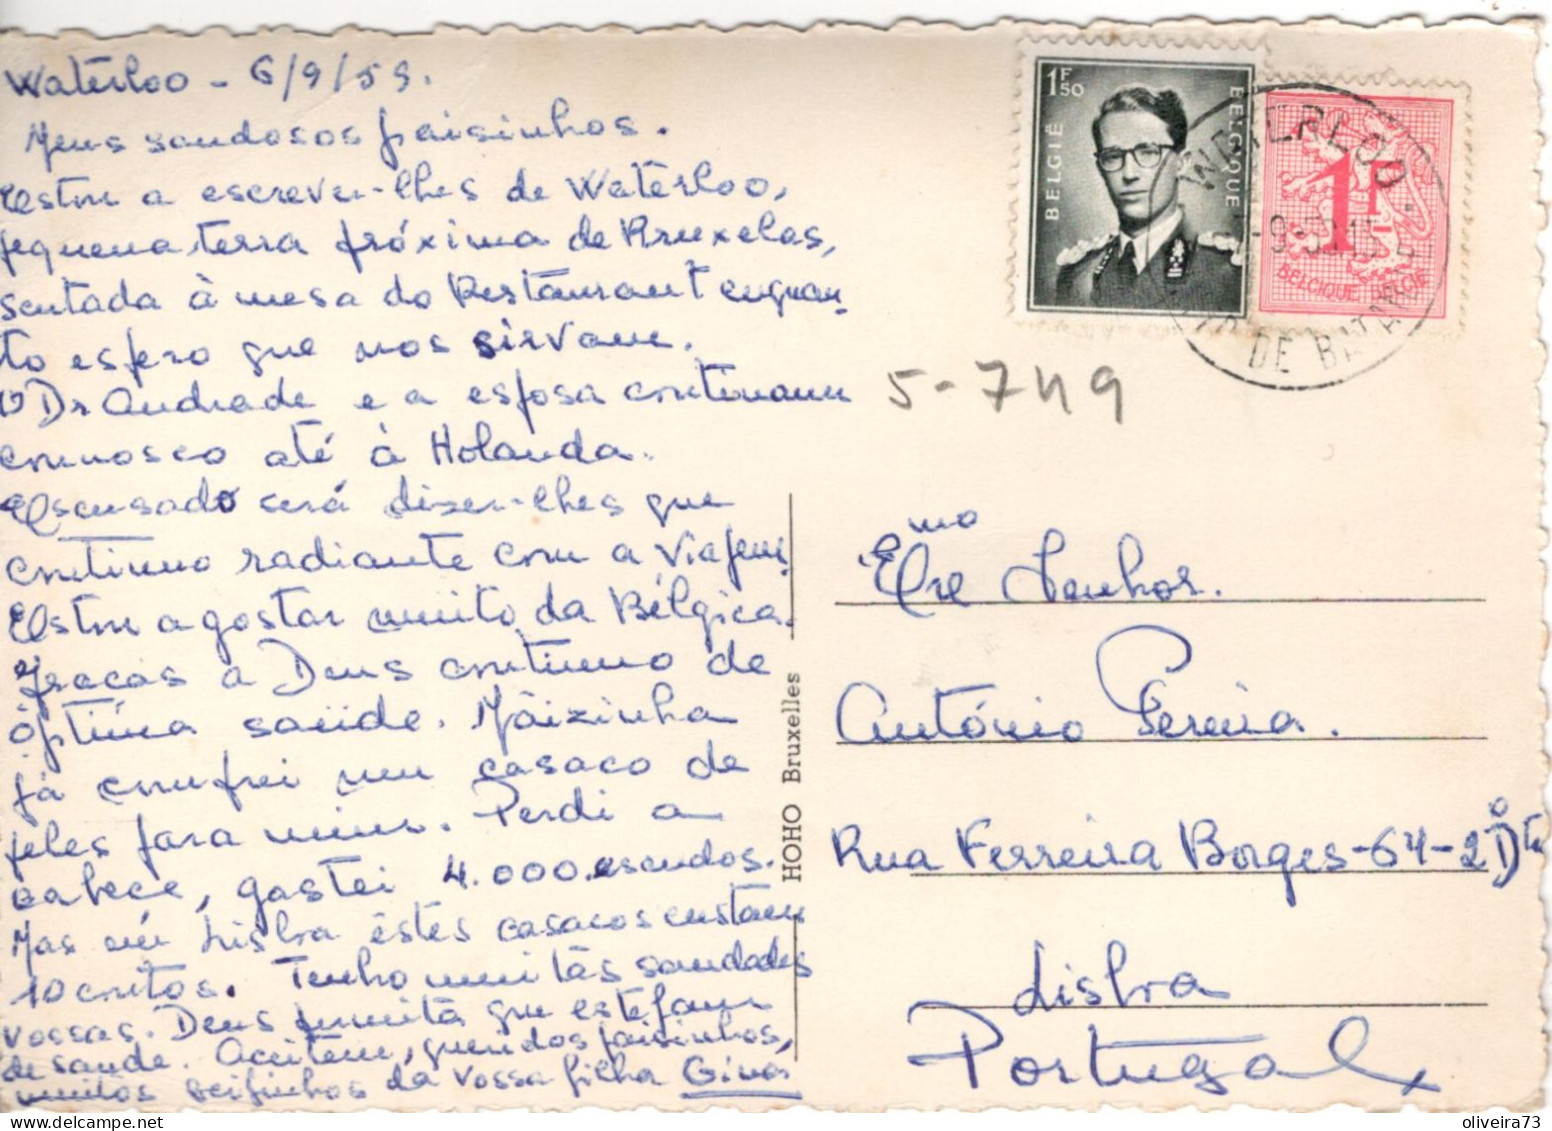 Waterloo - 6/9/59.
Meus saudosos paisinhos.
Estou a escrever-lhes de Waterloo,
pequena terra próxima de Bruxelas,
sentada à mesa do Restaurant enquan-
to espero que nos sirvam.
O Dr Andrade e a esposa continuam
connosco até à Holanda.
Escusado será dizer-lhes que
continuo radiante com a viagem.
Estou a gostar muito da Bélgica.
Graças a Deus continuo de
óptima saúde. Mãizinha
já comprei um casaco de
peles para mim. Perdi a
cabeça, gastei 4.000.escudos.
Mas em Lisboa êstes casacos custam
10 contos. Tenho muitas saudades
vossas. Deus permita que estejam
de saude. Aceitem, queridos paisinhos,
muitos beijinhos da vossa filha Gina
HOHO Bruxelles
1F50
BELGIË
BELGIQUE
1F
BELGIQUE BELGIË
WATERLOO
DE
5-749
Exmo Senhor.
António Pereira.
Rua Ferreira Borges-64-2º Dto
Lisboa
Portugal
oliveira73